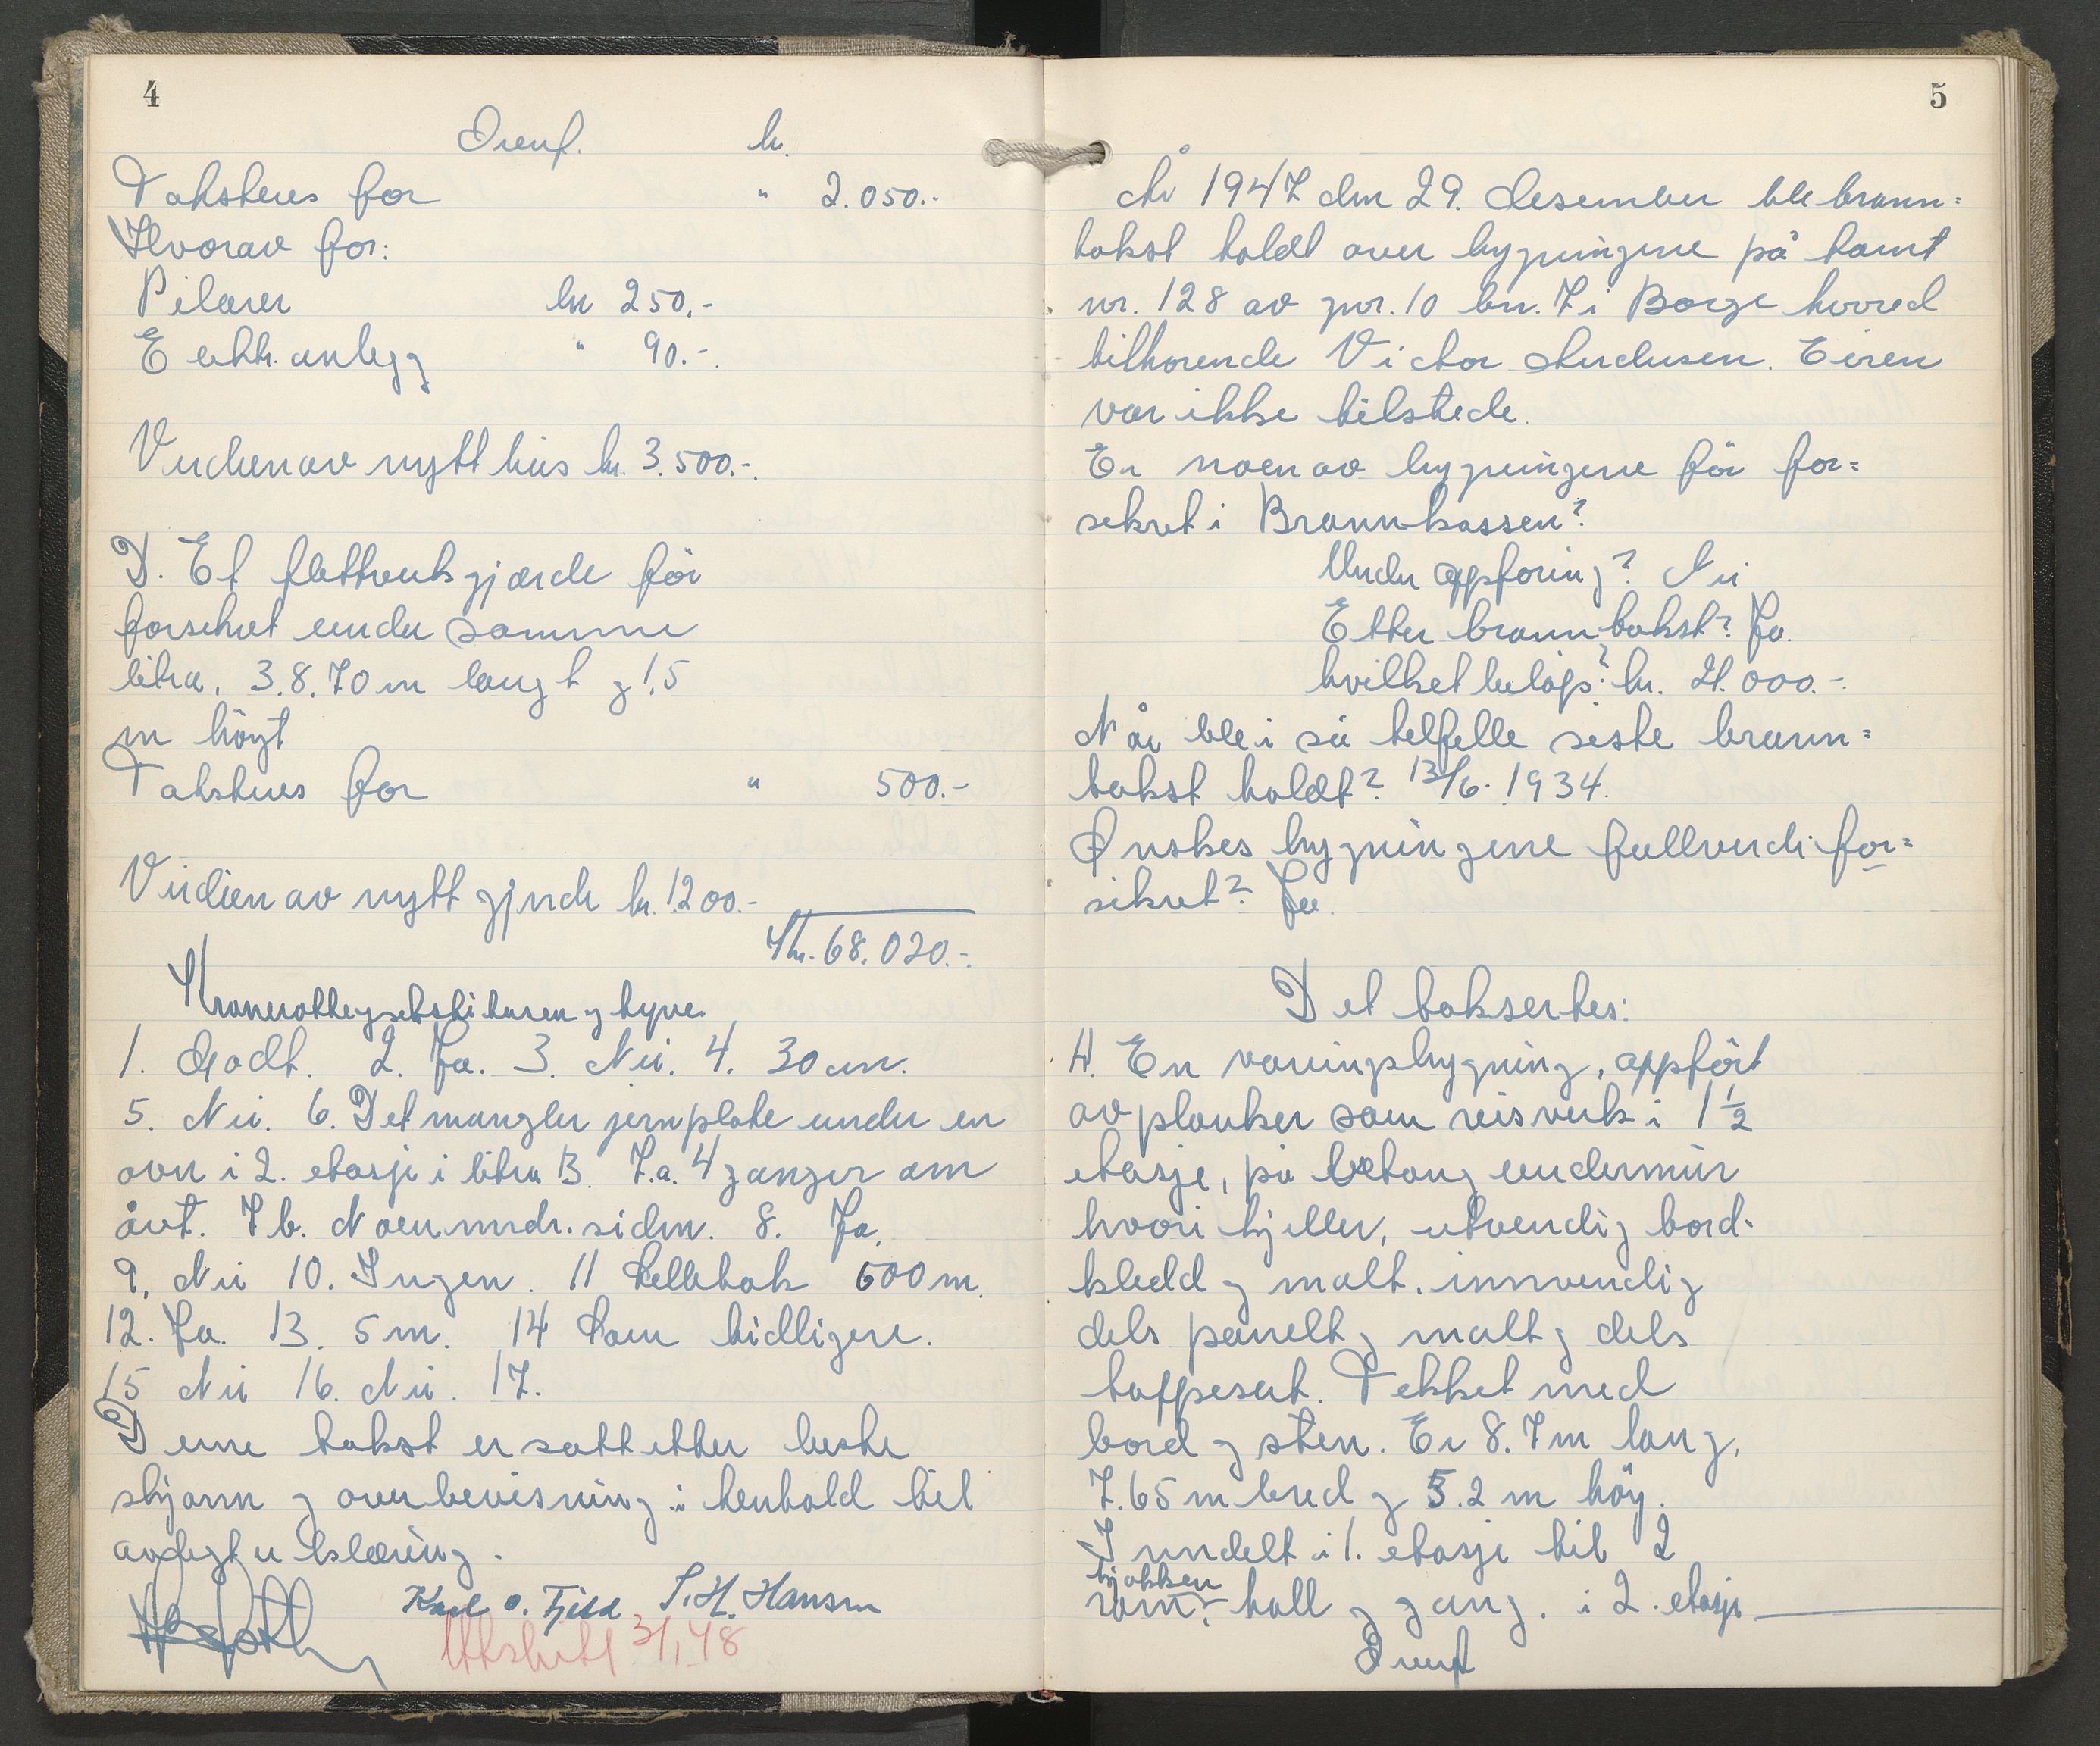 4
Overf. kr.
Taksteres for " 2.050.-
Hvorav for:
Pilarer kr 250,-
Elektr. anlegg " 90.-
Verdien av nytt hus kr. 3.500.-
D. Et flettverksgjærde før
forsikret under samme
litra, 38.70 m langt og 1,5
m höyt
Taksteres for " 500.-
Verdien av nytt gjerde kr. 1200.-
Kr. 68.020.-
1. Godt. 2. Ja. 3. Nei. 4. 30 cm.
5. Nei. 6. Det mangler jernplate under en
ovn i 2. etasje i litra B. 7.a. 4 ganger om
året. 7 b. Noen mndr. siden. 8. Ja.
9. Nei 10. Ingen. 11 Selletak 600 m.
12. Ja. 13. 5 m. 14 Som tidligere.
15 Nei 16. Nei. 17.
Denne takst er satt etter beste
skjønn og overbevisning i henhold til
avlagt erklæring.
Karl O. Fjeld S. H. Hansen
Utskrift 3/1 48
5
År 1947 den 29. desember ble brann=
takst holdt over bygningene på tomt
nr. 128 av gnr. 10 bn. 7 i Borge herred
tilhørende Victor Andersen. Eieren
var ikke tilstede.
Er noen av bygningene för for=
sikret i Brannkassen?
Under oppføring? Nei
Etter branntakst? Ja.
hvilket beløp? kr. 21.000.-
Når ble i så tilfelle siste brann=
takst holdt? 13/6. 1934.
Ønskes bygningene fullverdi for=
sikret? Ja.
Det taksertes:
A. En våningsbygning, oppført
av planker som reisverk i 1 1/2
etasje, på betong undermur
hvori kjeller, utvendig bord-
kledd og malt, innvendig
dels panelt og malt og dels
tappesert. Tekket med
bord og sten. Er 8.7 m lang,
7.65 m bred og 5.2 m höy.
Inndelt i 1. etasje til 2
kjøkken
rom, hall og gang. i 2. etasje
Overf